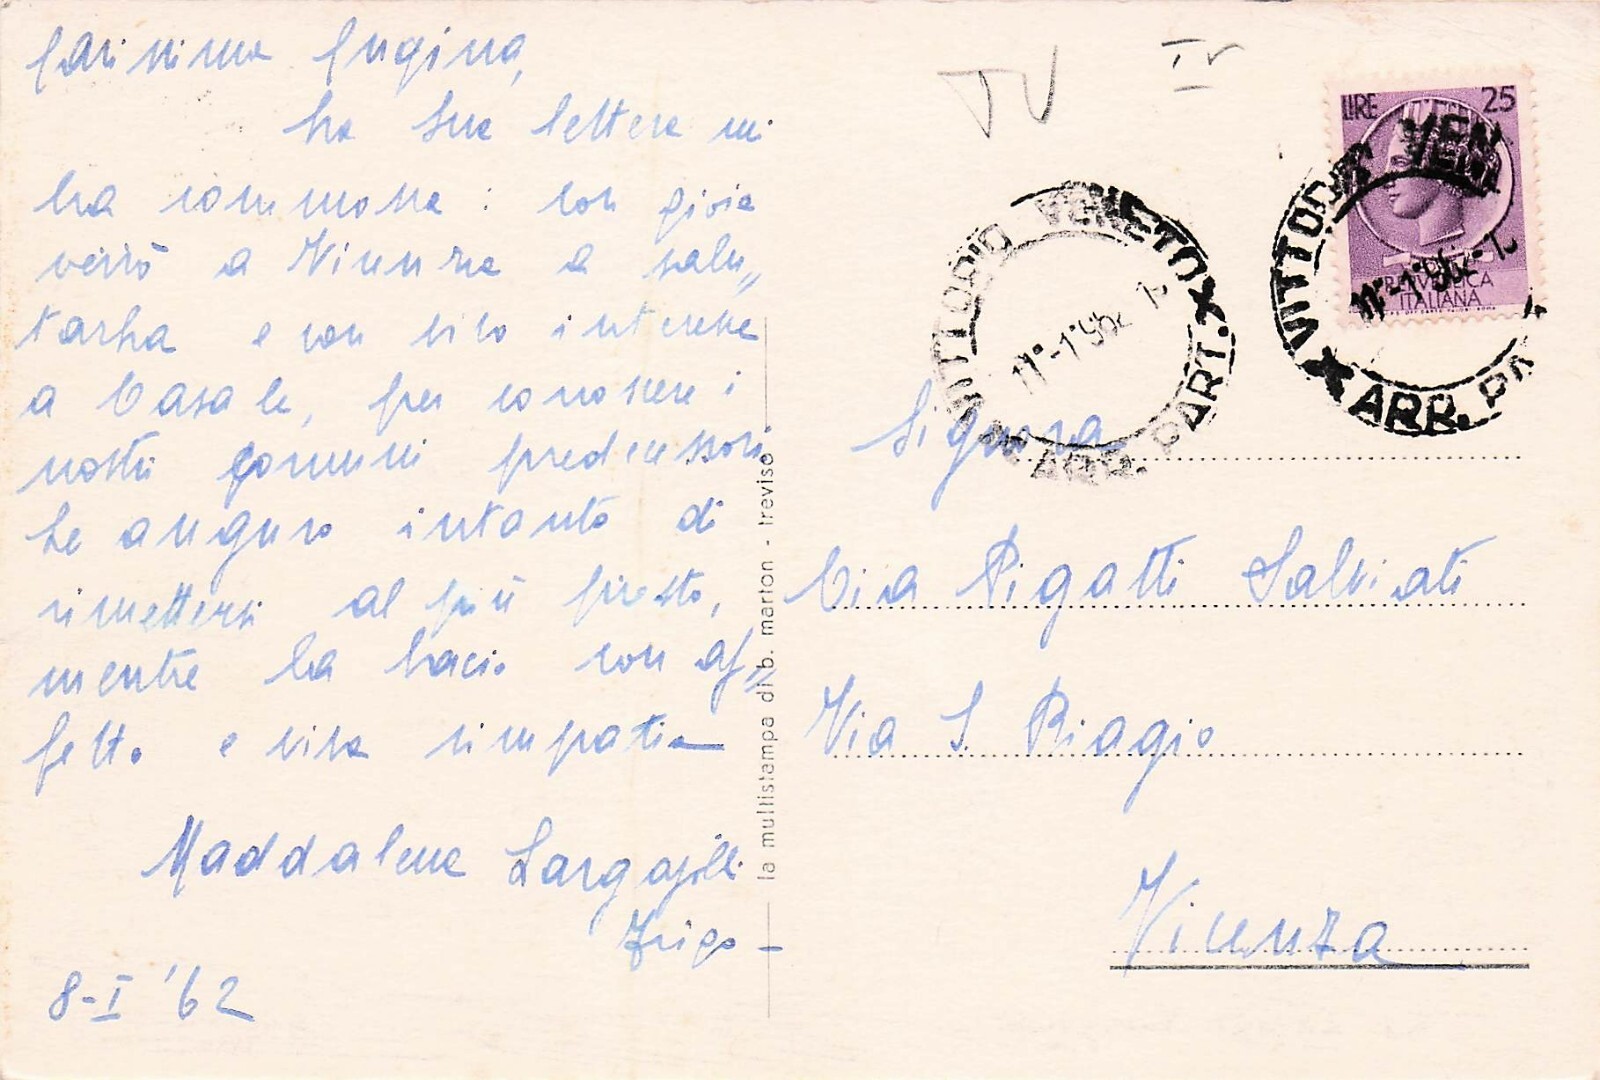 Carissima Cugina,
la Sua lettera mi
ha commossa: con gioia
verrò a Vicenza a salu„
tarla e con vivo interesse
a Casale, per conoscere i
nostri comuni predecessori.
Le auguro intanto di
rimettersi al più presto,
mentre la bacio con af„
fetto e viva simpatia
Maddalena
Frigo -
8-I '62
la multistampa di b. marton - treviso
TV
TV
LIRE 25
REPUBBLICA
ITALIANA
VITTORIO VENETO
ARR. PART.
11-1-1962
VITTORIO VEN
ARR. PA
11-1-1962
Signora
Pigatti Salviati
Via S. Biagio
Vicenza